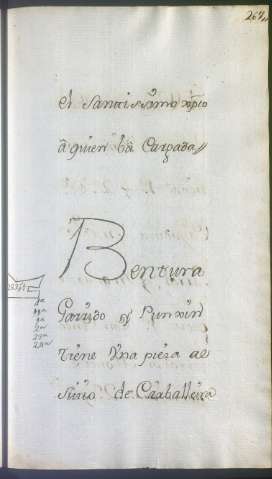 264
el santissimo xpto
a quien ba Cargada//
Bentura
Garrido y Punxin
tiene Vna pieza al
sitio de Carballeira